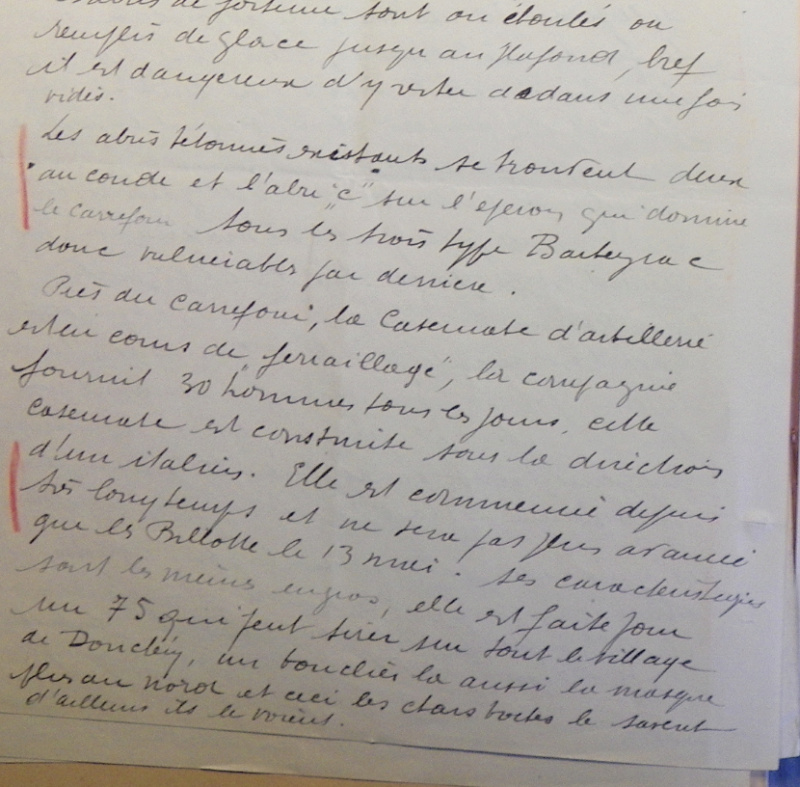 de fortune sont ou éboulés ou
remplis de glace jusqu'au plafond, bref
il est dangereux d'y rester dedans une fois
vidés.
Les abris bétonnés existants se trouvent deux
au coude et l'abri "C" sur l'éperon qui domine
le carrefour tous les trois type Barbeyrac
donc vulnérables par derrière.
Près du Carrefour, la Casemate d'artillerie
est en cours de "ferraillage", la compagnie
fournit 30 hommes tous les jours, cette
casemate est construite sous la direction
d'un italien. Elle est commencée depuis
très longtemps et ne sera pas plus avancée
que les Billotte le 13 mai. Ses caractéristiques
sont les mêmes engros, elle est faite pour
un 75 qui peut tirer sur tout le village
de Donchéry, un bouclier la aussi la masque
plus au nord et ceci les chars boches le savent
d'ailleurs ils le voient.